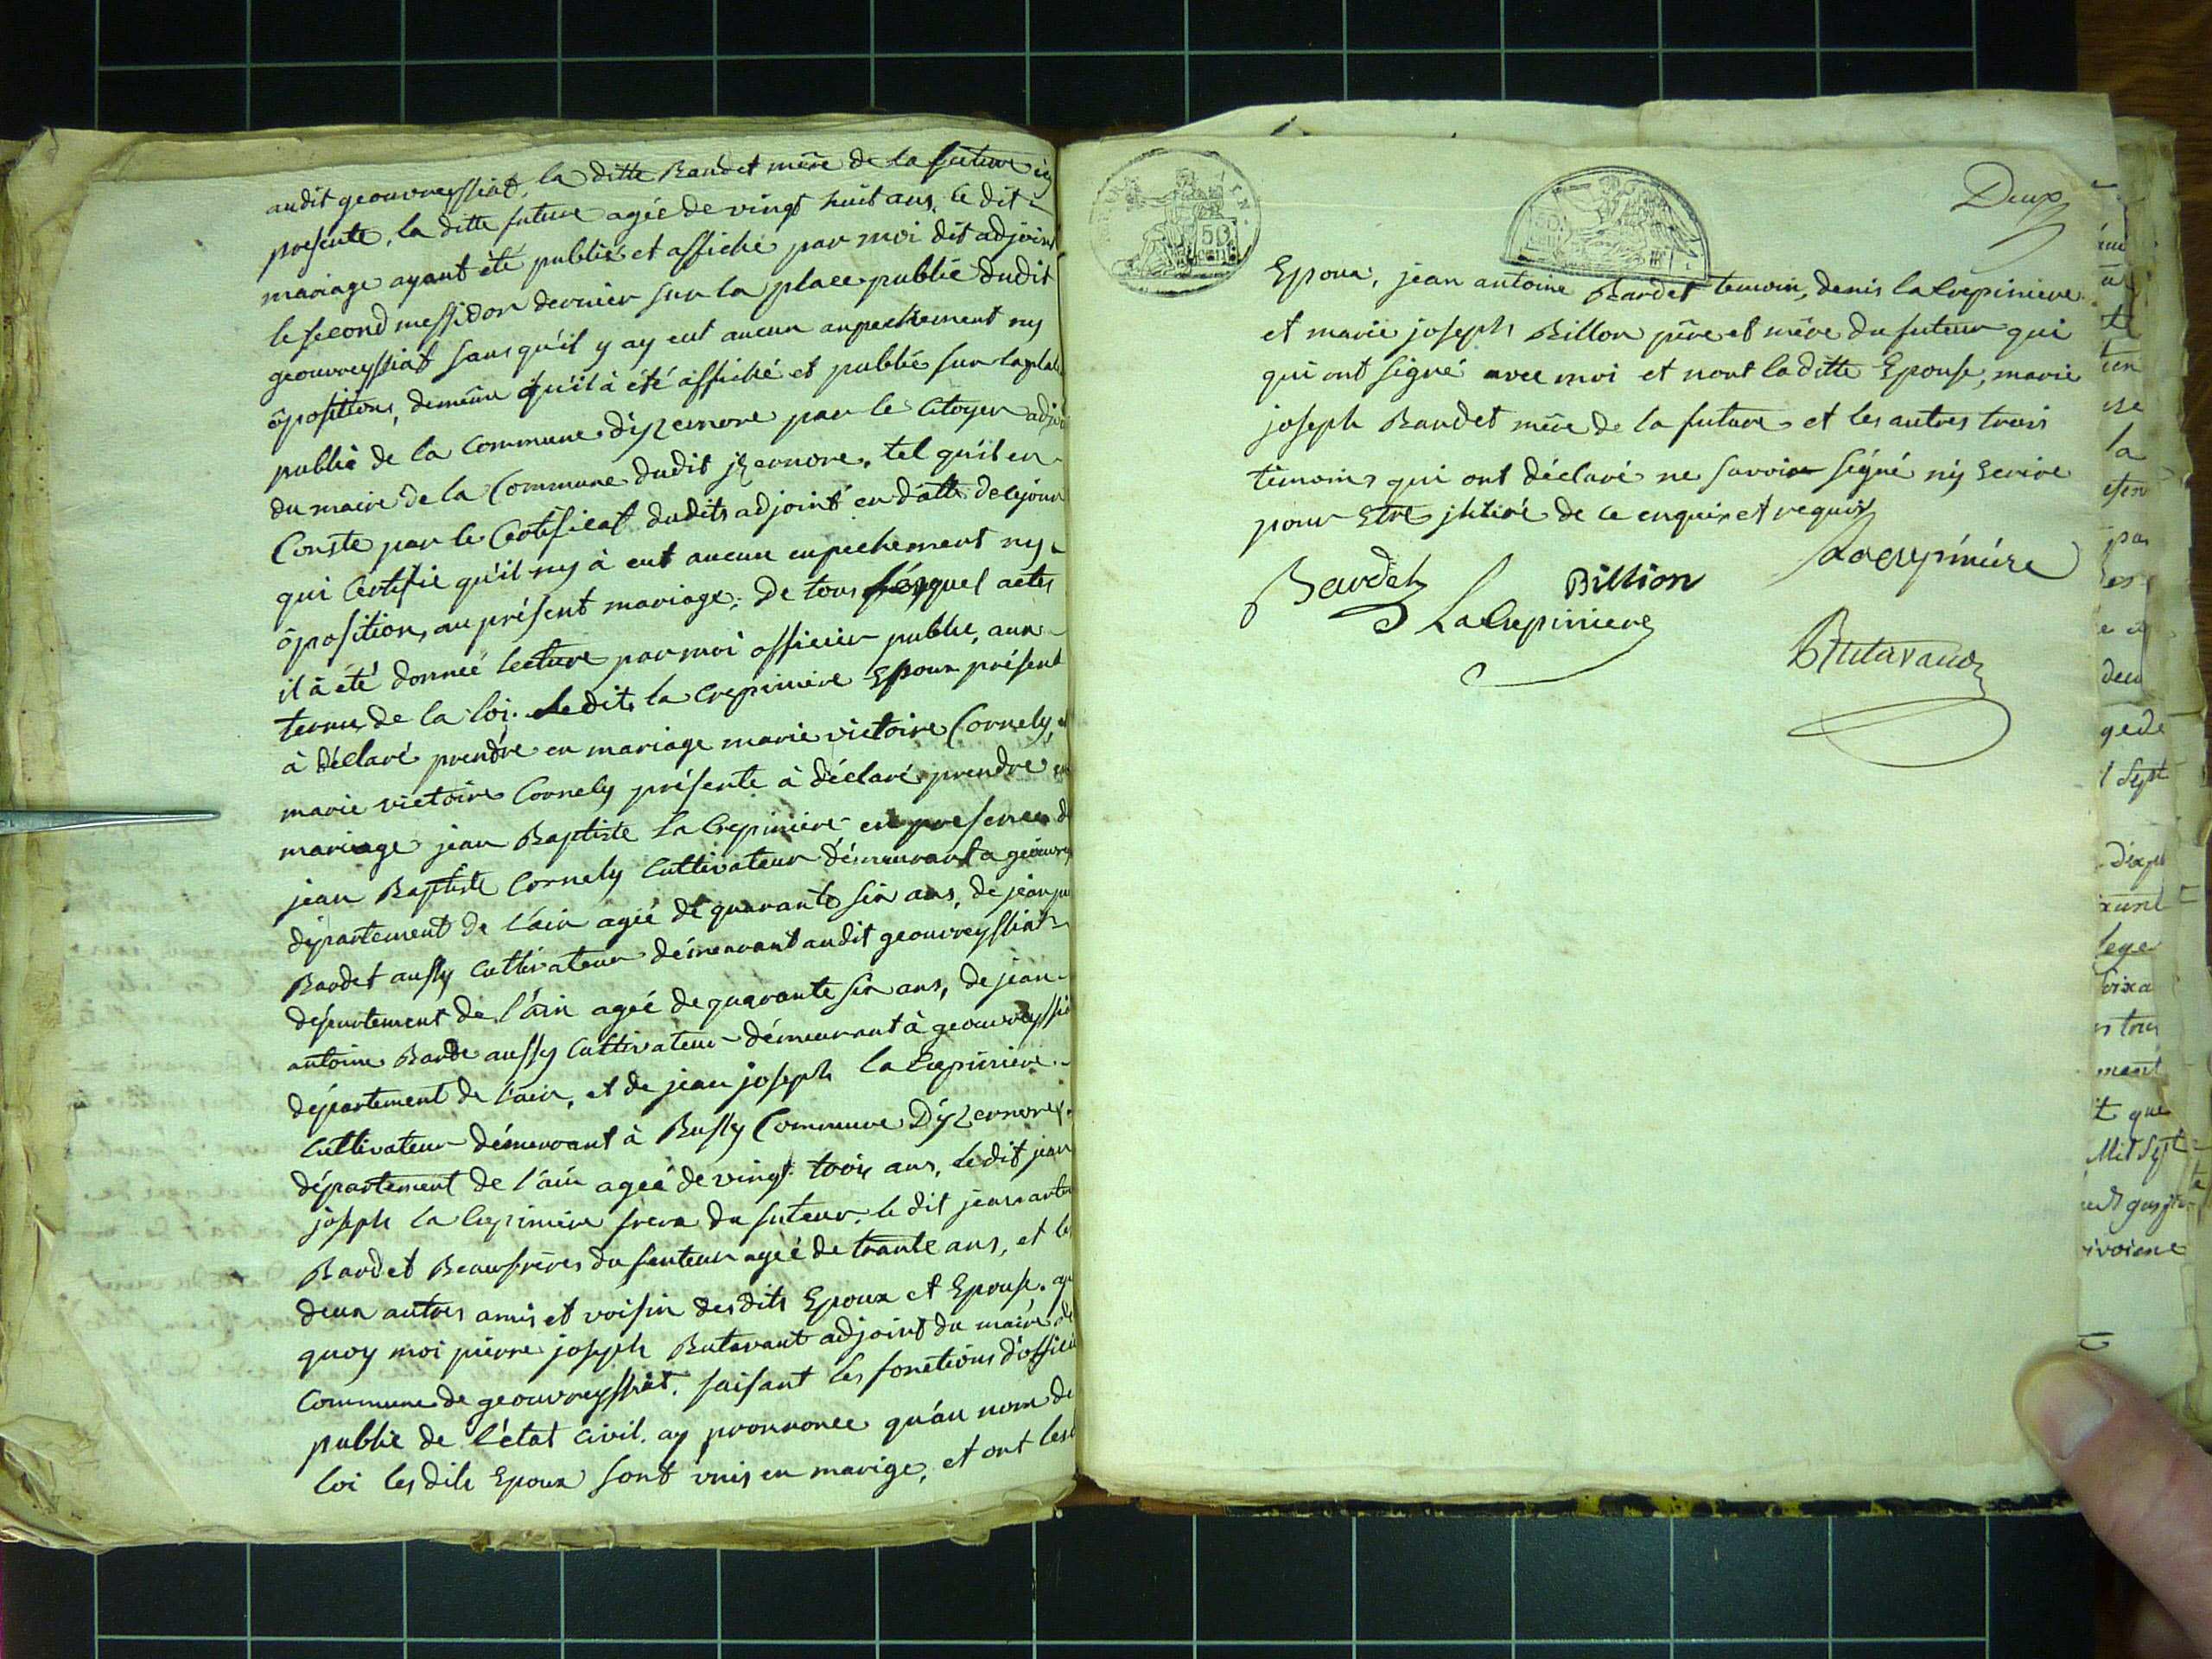 audit geouvreyssiat, la ditte Bardet mère de la future icy
presente, la ditte future agée de vingt huit ans, le dit
mariage ayant été publié et affiché par moi dit adjoint
le second messidor dernier sur la place publié dudit
geouvreyssiat sans qu'il y ay eut aucun anpechement ny
ôpositions, demême qu'il à été affiché et publié sur la place
publié de la commune d'izernore par le Citoyen adjoint
du maire de la Commune dudit jzernore, tel qu'il en
Conste par le Certificat dudits adjoint en datte de ce jour
qui Certifie qu'il ny à eut aucun enpechement ny
ôposition, au présent mariage, de tous lesquel actes
il à été donneé lecture par moi officier public, aux
terme de la loi. Le dit la Crepiniere Epoux présent
à déclaré prendre en mariage marie victoire Cornely, et
marie victoire Cornely présente à déclaré prendre en
mariage jean Baptiste la Crepiniere en presence de
jean Baptiste Cornely Cultivateur démeurant a geouvrey
département de l'ain ageé de quarante six ans, de jean
Bardet aussy Cultivateur démeurant audit geouvreyssiat
département de l'ain ageé de quarante six ans, de jean
antoine Barde aussy Cultivateur démeurant à geouvreyssia
département de l'ain, et de jean joseph la Crepiniere
Cultivateur démeurant à Bussy Commune D'yzernore
département de l'ain ageé de vingt trois ans, le dit jean
joseph la Crepiniere frere du futeur, le dit jean anto
Bardet Beaufrères du feuteur ageé de trante ans, et les
deux autres amis et voisin des dits Epoux et Epouse. apr
quoy moi pierre joseph Butavant adjoint du maire de
Commune de geouvreyssiat, faisant les fonctions d'officier
public de l'état civil. ay prononcé qu'au nom de
loi les dits Epoux sont unis en marige, et ont les
Deux
Epoux, jean antoine Bardet temoin, denis la Crepiniere
et marie joseph Billon père et mère du futeur qui
qui ont signé avec moi et nont la ditte Epouse, marie
joseph Bardet mère de la future et les autres trois
témoins qui ont déclaré ne savoir signé ny Ecrire
pour Etre de ce enquis et requis
Bardet
Billion
Lacrepiniére
LaCrepiniere
Butavand